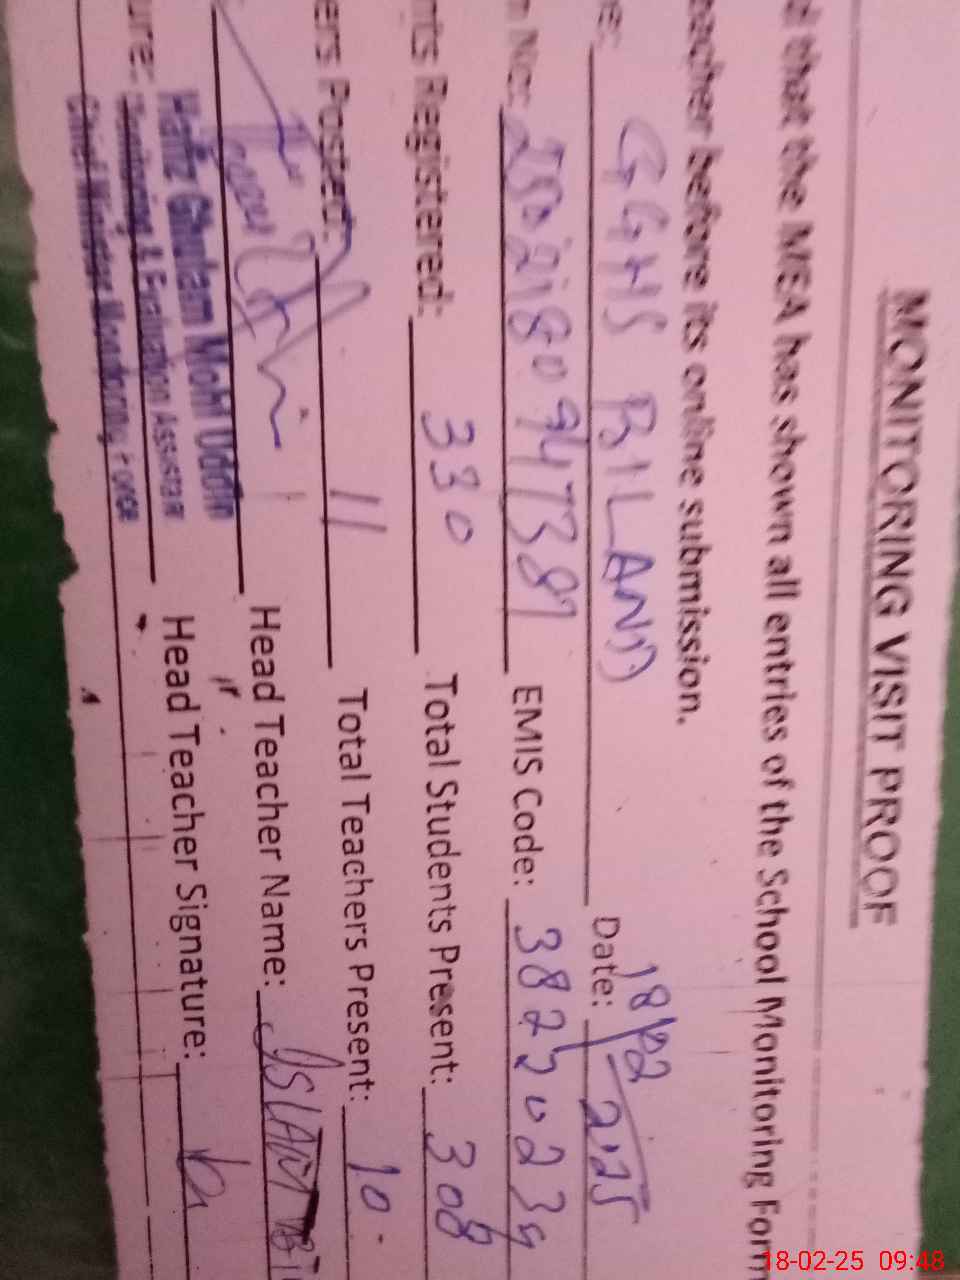 MONITORING VISIT PROOF
d that the MEA has shown all entries of the School Monitoring Form
eacher before its online submission.
e: GGHS BILAND Date: 18/02/2025
n No: EMIS Code: 38220239
nts Registered: 330 Total Students Present: 308
ers Posted: 11 Total Teachers Present: 10
Head Teacher Name: ISLAM
ure: Head Teacher Signature:
Hafiz Ghulam Mohi Uddin
Monitoring & Evaluation Assistant
Chief Minister Monitoring Force
18-02-25 09:48